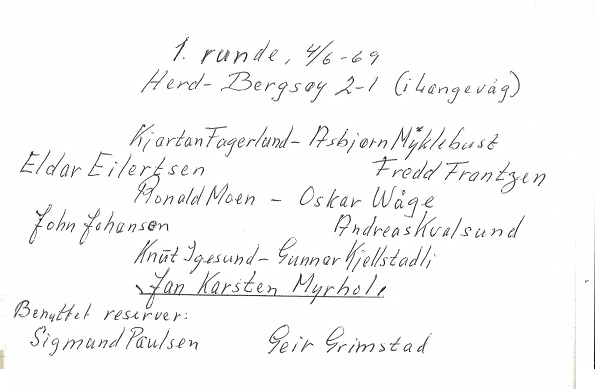 1. runde, 4/6-69
Herd- Bergsøy 2-1 (i Langevåg)
Kjartan Fagerlund - Asbjørn Myklebust
Eldar Eilertsen Fredd Frantzen
Ronald Moen - Oskar Wåge
John Johansen Andreas Kvalsund
Knut Igesund - Gunnar Kjellstadli
Jan Karsten Myrhol
Benyttet reserver:
Sigmund Paulsen Geir Grimstad